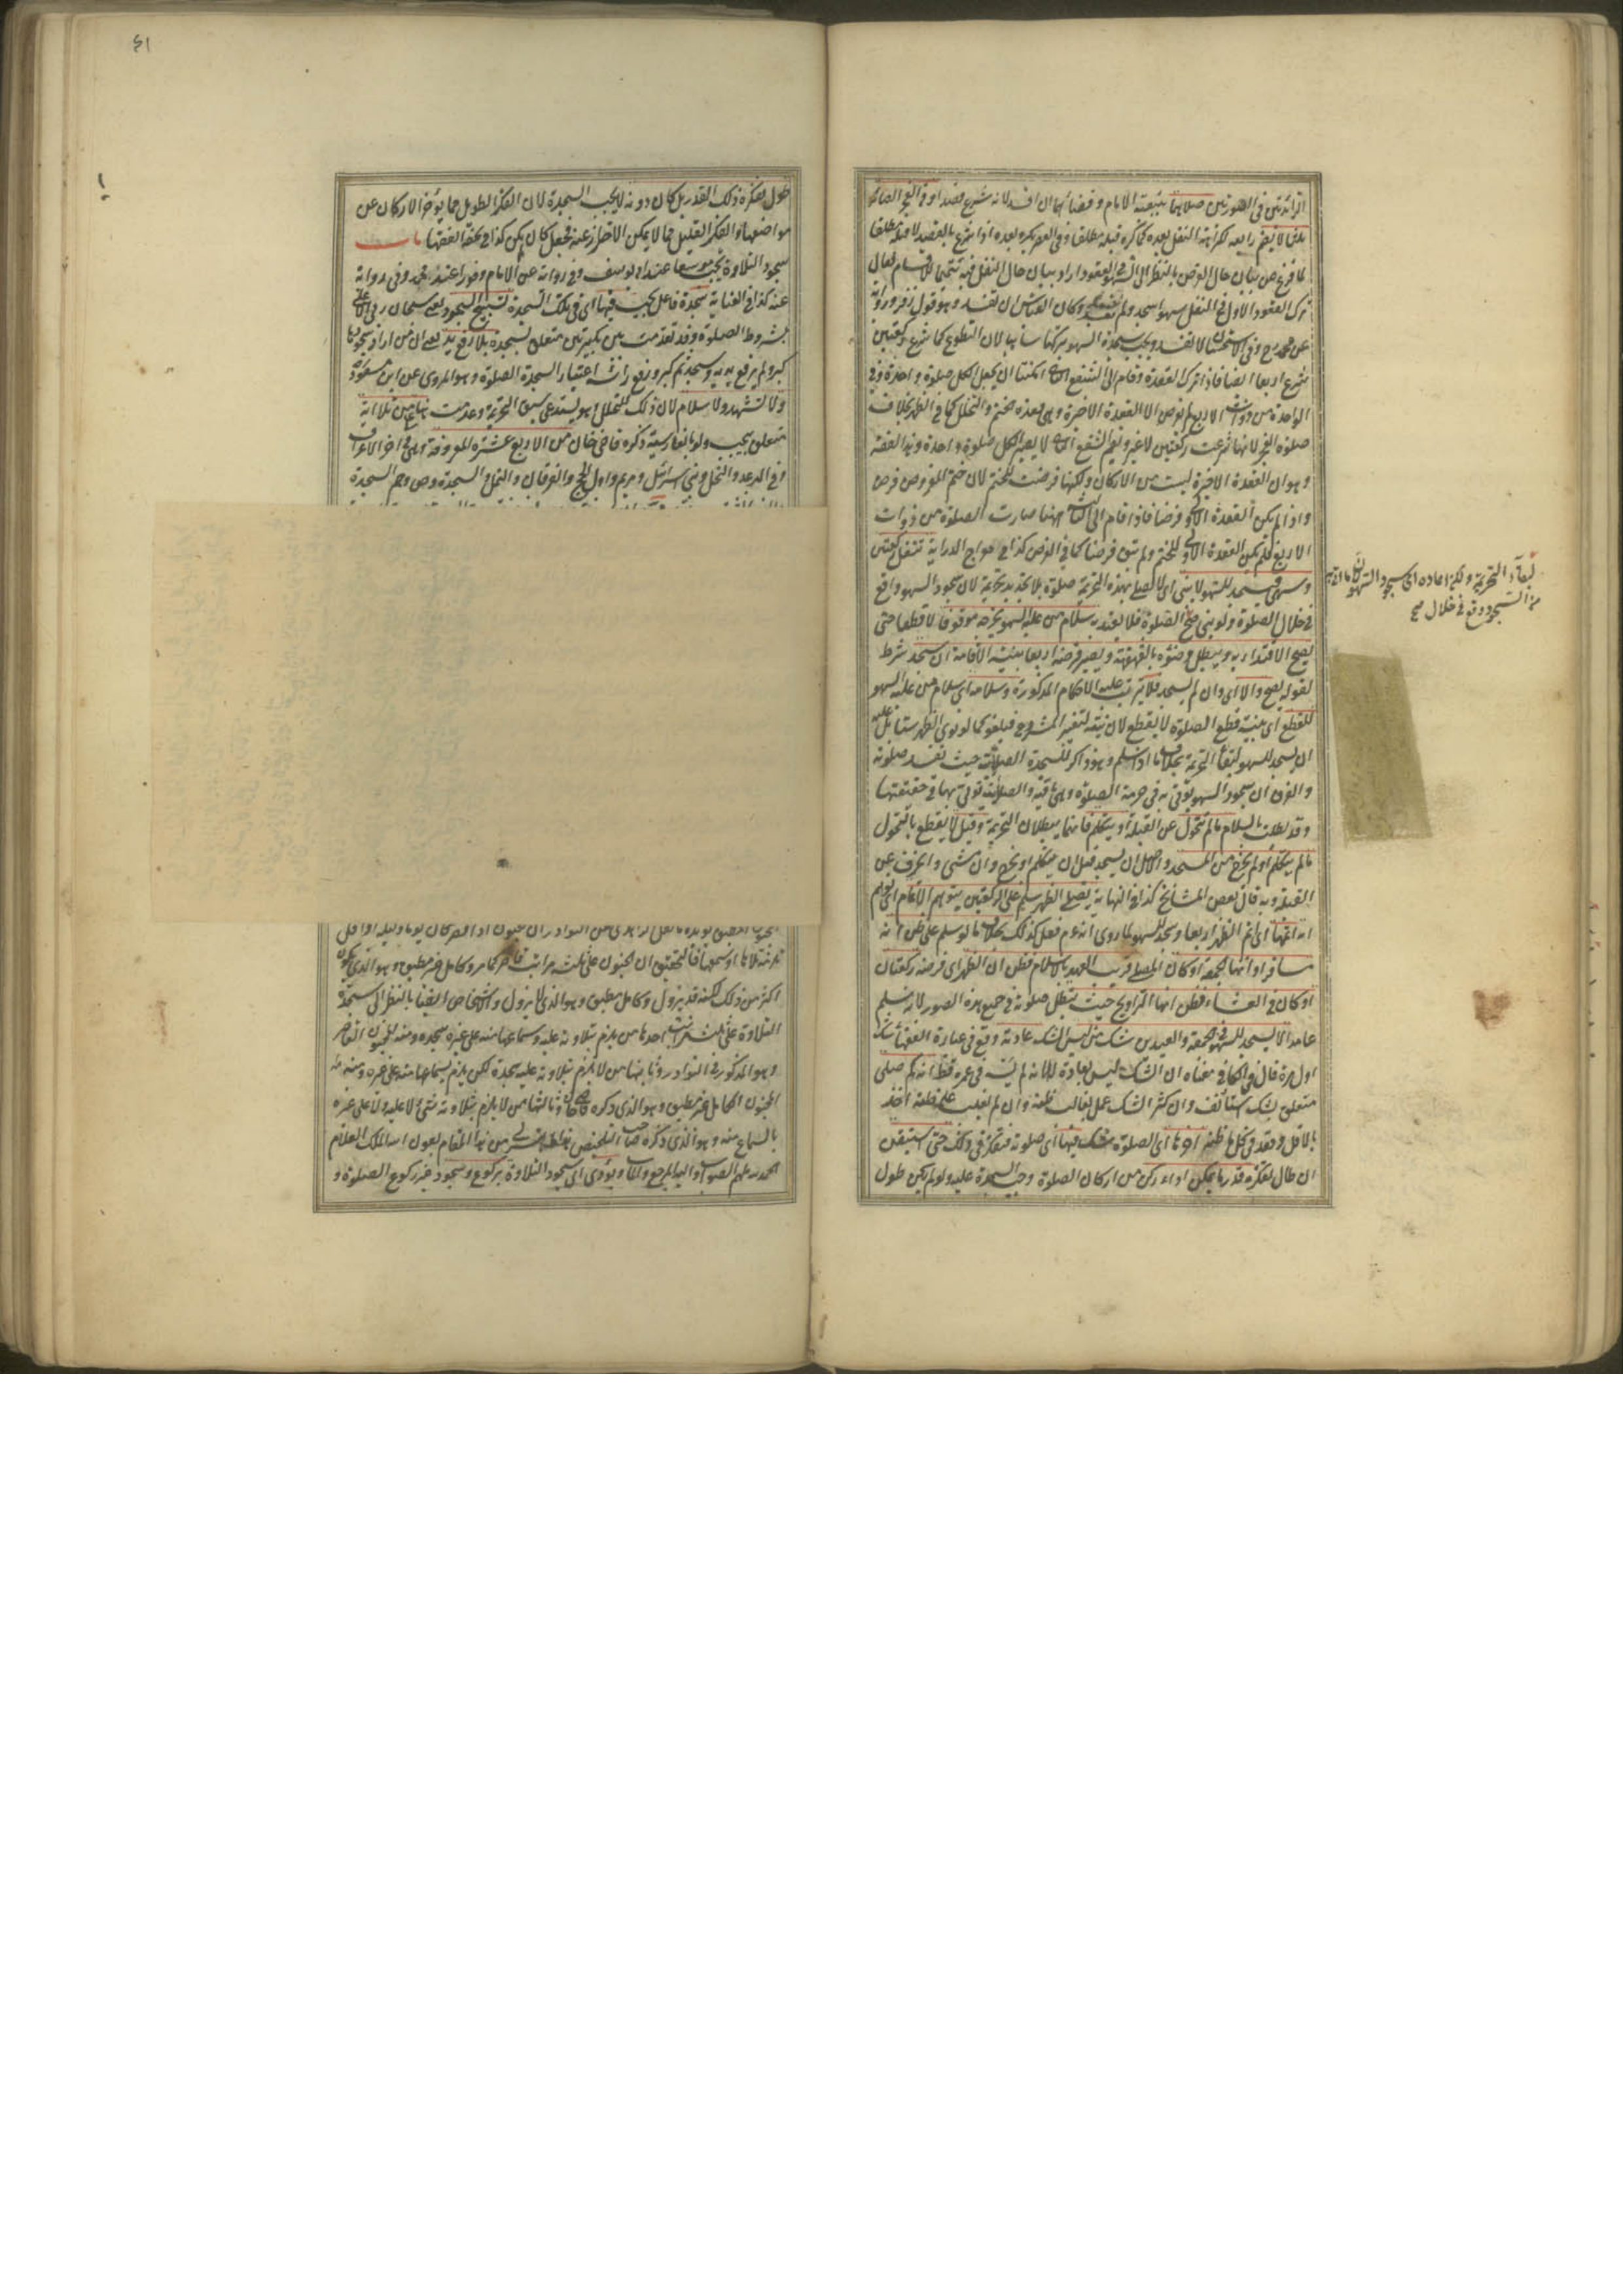 الزائدتين في الصورتين صلاهما بتبعية الامام وقضاهما ان افسد لانه شرع قصدا وفي الفجر
لما فرغ من بيان حال الفرض بالنظر الى السهو في القعود اراد بيان حال النفل فيه تتميما للاقسام فقال
ترك القعود الاول في النفل سهوا سجد ولم تفسد وكان القياس ان تفسد وهو قول زفر ورواية
عن محمد رح وفي الاستحسان لا تفسد ويجب سجدة السهو بتركها ساهيا لان التطوع كما شرع ركعتين
شرع اربعا ايضا فاذا ترك القعدة وقام الى الشفع الثاني امكننا ان يجعل الكل صلوة واحدة وفي
الواحدة من ذوات الاربع لم يفرض الا القعدة الاخيرة وهي قعدة ختم والتحلل كما في الظهر بخلاف
صلوة الفجر لانها شرعت ركعتين لا غير وبضم الشفع الثاني لا يصير الكل صلوة واحدة وهذا الفقه
وهو ان القعدة الاخيرة ليست من الاركان ولكنها فرضت للختم لان ختم المفروض فرض
واذا لم يكن القعدة الاولى فرضا فاذا قام الى الثالثة ههنا صارت الصلوة من ذوات
الاربع فلم تكن القعدة الاولى للختم ولم تبق فرضا كما في الفرض كذا في معراج الدراية تنفل ركعتين
وسهى فسجد للسهو لا يبني اي لا يصلي بهذه التحريمة صلوة بلا تجديد تحريمة لان سجود السهو واقع
في خلال الصلوة ولو بنى صح الصلوة فلا يعتد به سلام من عليه السهو يخرجه موقوفا لا قطعا حتى
يصح الاقتداء به ويبطل وضوءه بالقهقهة ويصير فرضه اربعا بنية الاقامة ان سجد شرط
لقوله يصح والا اي وان لم يسجد فلا يترتب عليه الاحكام المذكورة وسلامه اي سلام من عليه السهو
للقطع اي بنية قطع الصلوة لا يقطع لان نيته لتغيير المشروع فيلغو كما لو نوى الظهر ستا بل عليه
ان يسجد للسهو لبقاء التحريمة بخلاف ما اذا سلم وهو ذاكر للسجدة الصلاتية حيث تفسد صلوته
والفرق ان سجود السهو يؤتى به في حرمة الصلوة وهي باقية والصلاتية تؤتى بها في حقيقتها
وقد بطلت بالسلام ما لم يتحول عن القبلة او يتكلم فانهما يبطلان التحريمة وقيل لا يقطع بالتحول
ما لم يتكلم او لم يخرج من المسجد والاصل ان يسجد قبل ان يتكلم او يخرج وان مشى وانحرف عن
القبلة وبه قال بعض المشائخ كذا في النهاية يصلي الظهر سلم على الركعتين يتوهم الاتمام اي توهم
انه اتمها اي اتم الظهر اربعا وسجد للسهو لما روي انه عم فعل كذلك بخلاف ما لو سلم على ظن انه
مسافر او انها الجمعة او كان المصلي قريب العهد بالاسلام فظن ان الظهر اي فرضه ركعتان
او كان في العشاء فظن انها التراويح حيث يبطل صلوته في جميع هذه الصور لانه سلم
عامدا لا يسجد للسهو في الجمعة والعيدين شك من ليس الشك عادته وقع في عبارة الفقهاء شك
اول مرة قال في الكافي معناه ان الشك ليس بعادة له لا انه لم يشك في عمره قط انه كم صلى
متعلق بشك استأنف وان كثر الشك عمل بغالب ظنه وان لم يغلب على ظنه اخذ
بالاقل وقعد في كل ما ظنه اخرها اي الصلوة شك فيها اي صلوته فتفكر في ذلك حتى استيقن
ان طال تفكره قدر ما يمكن اداء ركن من اركان الصلوة وجب السجدة عليه ولو لم يكن طول
لبقاء التحريمة
في خلال صح
٤١
طول تفكره ذلك القدر بل كان دونه لا يجب السجدة لان الفكر الطويل مما يؤخر الاركان عن
مواضعها والفكر القليل مما لا يمكن الاحتراز عنه فجعل كان لم يكن كذا في تحفة الفقهاء باب
سجود التلاوة يجب موسعا عند ابي يوسف وفي رواية عن الامام وفورا عند محمد وفي رواية
عنه كذا في العناية سجدة فاعل يجب فيها اي في تلك السجدة تسبيح السجود يعني سبحان ربي الاعلى
بشروط الصلوة وقد تقدمت بين تكبيرتين متعلق بسجدة بلا رفع يد يعني ان من اراد سجودها
كبر ولم يرفع يديه وسجد ثم كبر ورفع رأسه اعتبارا بسجدة الصلوة وهو المروي عن ابن مسعود
ولا تشهد ولا سلام لان ذلك للتحلل وهو يستدعي سبق التحريمة وعدمت ههنا من تلا اية
متعلق بيجب ولو بالفارسية ذكره قاضي خان من الاربع عشرة المعروفة وهي في اخر الاعراف
وفي الرعد والنحل وبني اسرائيل ومريم واول الحج والفرقان والنمل والسجدة وص وحم السجدة
اكثر من ذلك لكنه قد يزول وكامل مطبق وهو الذي لا يزول والاشخاص ايضا بالنظر الى سجدة
التلاوة على ثلث مراتب احدها من يلزم بتلاوته عليه وسماعها منه على غيره سجدة ومنه المجنون القاصر
وهو المذكور في النوادر وثانيها من لا يلزم بتلاوته عليه سجدة لكن يلزم بسماعها منه على غيره ومنه
المجنون الكامل غير مطبق وهو الذي ذكره قاضي خان وثالثها من لا يلزم بتلاوته شيء لا عليه ولا على غيره
بالسماع منه وهو الذي ذكره صاحب التلخيص هذا ما تيسر لي من هذا المقام بعون الله الملك العلام
الحمد لله ملهم الصواب واليه المرجع والمآب ويؤدى اي سجود التلاوة بركوع وسجود غير ركوع الصلوة و